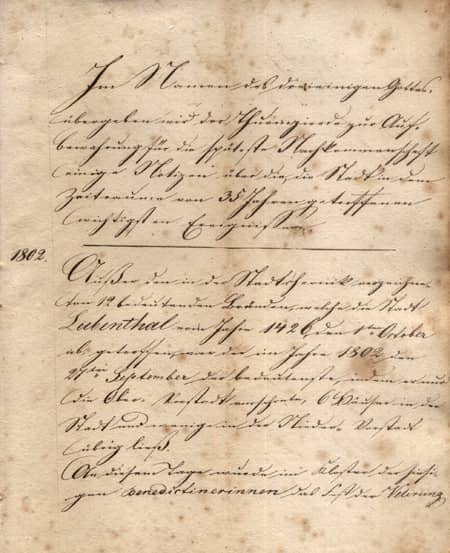 Im Namen des dreieinigen Gottes.
übergeben wir der Thurmzierde zur Auf-
bewahrung für die späteste Nachkommenschaft
einige Notizen über die, die Stadt in dem
Zeitraume von 35 Jahren getroffenen
wichtigsten Ereignisse.
1802.
Außer den in der Stadtchronik verzeichne-
ten 12 bedeutenden Bränden, welche die Stadt
Liebenthal vom Jahre 1426 den 1ten October
ab, getroffen, war der im Jahre 1802 den
September, der bedeutenste, indem er nur
die Ober-Vorstadt verschonte, 6 Häuser in der
Stadt und wenige in der Nieder-Vorstadt
übrig ließ.
An diesem Tage wurde im Kloster der hiesi-
gen Benedictinerinnen das Fest der